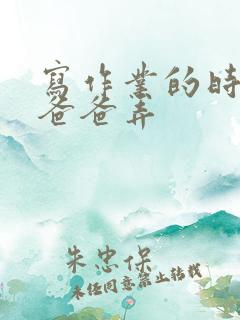 寫作業的時
爸爸弄
朱忠保
未經同意禁止轉載